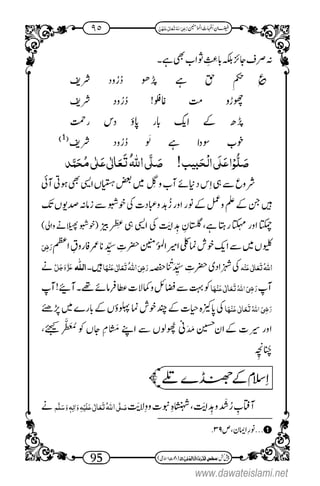 فیضانِ اُمّہاتُ المؤمنین رَضِیَ اللہُ تَعَالٰی عَنْہُنَّ
۹۵
نہ صرف جائز بلکہ باعِثِ ثواب بھی ہے۔
حکمِ حق ہے پڑھو دُرُود شریف
چھوڑو مت غافلو! دُرُود شریف
پڑھ کے ایک بار پاؤ دس رحمت
خوب سودا ہے لو دُرُود شریف (1)
صَلُّوْا عَلَی الْحَبِیْب! صَلَّی اللہُ تَعَالٰی عَلٰی مُحَمَّد
شروع ہی سے اس دنیائے آب وگِل میں بعض ایسی ہستیاں بھی ہوتی آئی
ہیں جن کے علم و عمل کے نور اور زہد وعبادت کی خوشبو سے زمانہ صدیوں تک
چمکتا اور مہکتا رہتا ہے، گلستانِ ہدایت کی ایسی ہی ایک عطر بیز (خوشبو پھیلانے والی)
کلیوں میں سے ایک خوش نما کلی امیر المؤمنین حضرتِ سیّدنا عمر فاروقِ اعظم رَضِیَ
اللہُ تَعَالٰی عَنْہ کی شہزادی حضرتِ سیّدتنا حفصہ رَضِیَ اللہُ تَعَالٰی عَنْہَا ہیں۔ اللہ عَزَّوَجَلَّ نے
آپ رَضِیَ اللہُ تَعَالٰی عَنْہَا کو بہت سے فضائل وکمالات عطا فرمائے تھے۔ آئیے! آپ
رَضِیَ اللہُ تَعَالٰی عَنْہَا کی حیاتِ پاکیزہ کے چند خوش نما پہلوؤں کے بارے میں پڑھئے
اور سیرت کے ان حسین مَدَنی پھولوں سے اپنے مشامِ جاں کو مُعَطَّر کیجئے،
چُنَانْچِہ
اِسلام کے جھنڈے تلے
آفتابِ رُشد وہدایت، شہنشاہِ نبوت ووِلایَت صَلَّی اللہُ تَعَالٰی عَلَیْہِ وَاٰلِہٖ وَسَلَّم نے
1 ... نورِ ایمان، ص۳۹.
95
www.dawateislami.net